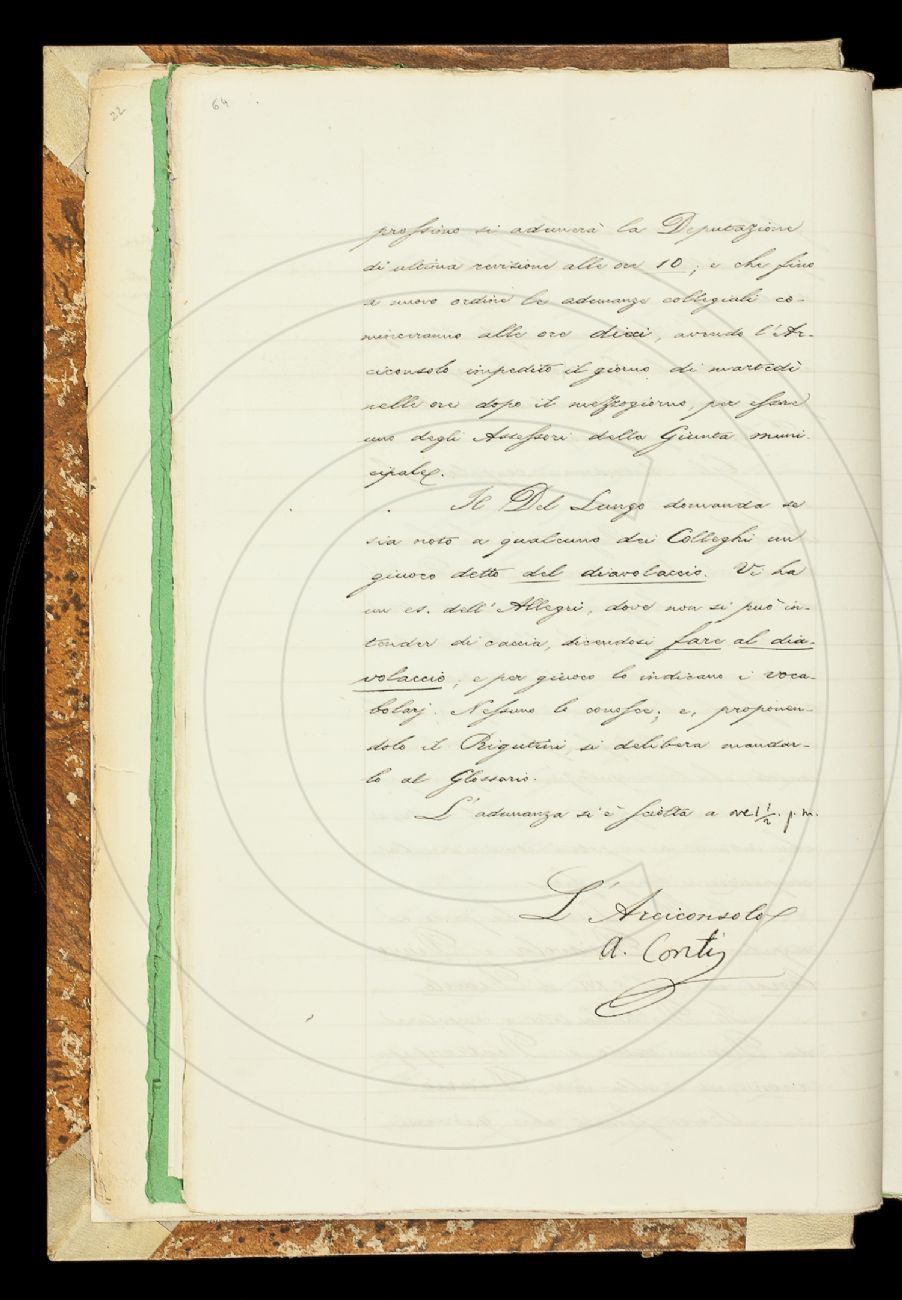 22
64
prossimo si adunerà la Deputazione
di ultima revisione alle ore 10; e che fino
a nuovo ordine le adunanze collegiali co-
minceranno alle ore dieci, avendo l'Ar-
ciconsolo impedito il giorno di martedì
nelle ore dopo il mezzogiorno, per essere
uno degli Assessori della Giunta muni-
cipale.
Il Del Lungo domanda se
sia noto a qualcuno dei Colleghi un
giuoco detto del diavolaccio. Vi ha
un es. dell'Allegri, dove non si può in-
tender di caccia, dicendosi fare al dia-
volaccio; e per giuoco lo indicano i voca-
bolarj. Nessuno lo conosce; e, proponen-
dolo il Rigutini si delibera mandar-
lo al Glossario.
L'adunanza si è sciolta a ore 1 1/2 p.m.
L'Arciconsolo
A. Conti